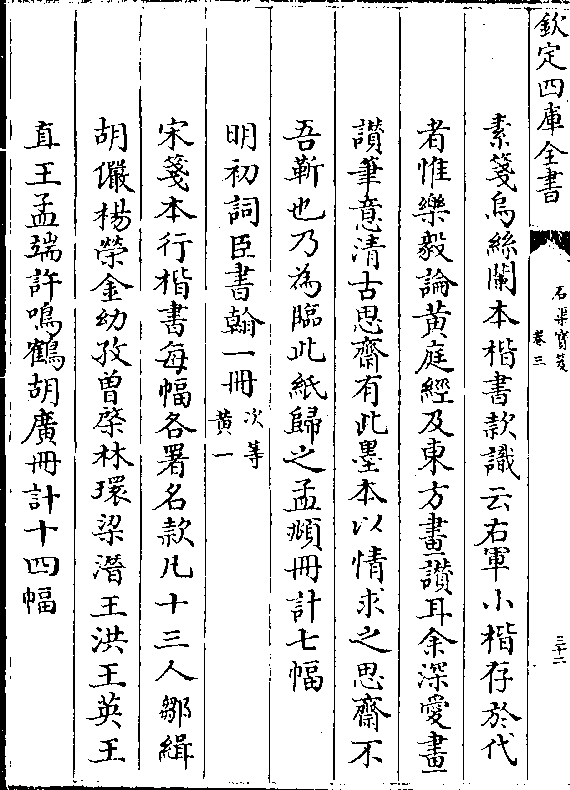 欽定四庫全書
石渠寳笈
卷三
三十二
素箋烏絲闌本楷書款識云右軍小楷存於代
者惟樂毅論黄庭經及東方畫讃耳余深愛畫
讃筆意清古思齋有此墨本以情求之思齋不
吾靳也乃為臨此紙歸之孟頫冊計七幅
明初詞臣書翰一冊
次等
黄一
宋箋本行楷書每幅各署名款凡十三人鄒緝
胡儼楊榮金幼孜曾棨林環梁潛王洪王英王
直王孟端許鳴鶴胡廣冊計十四幅